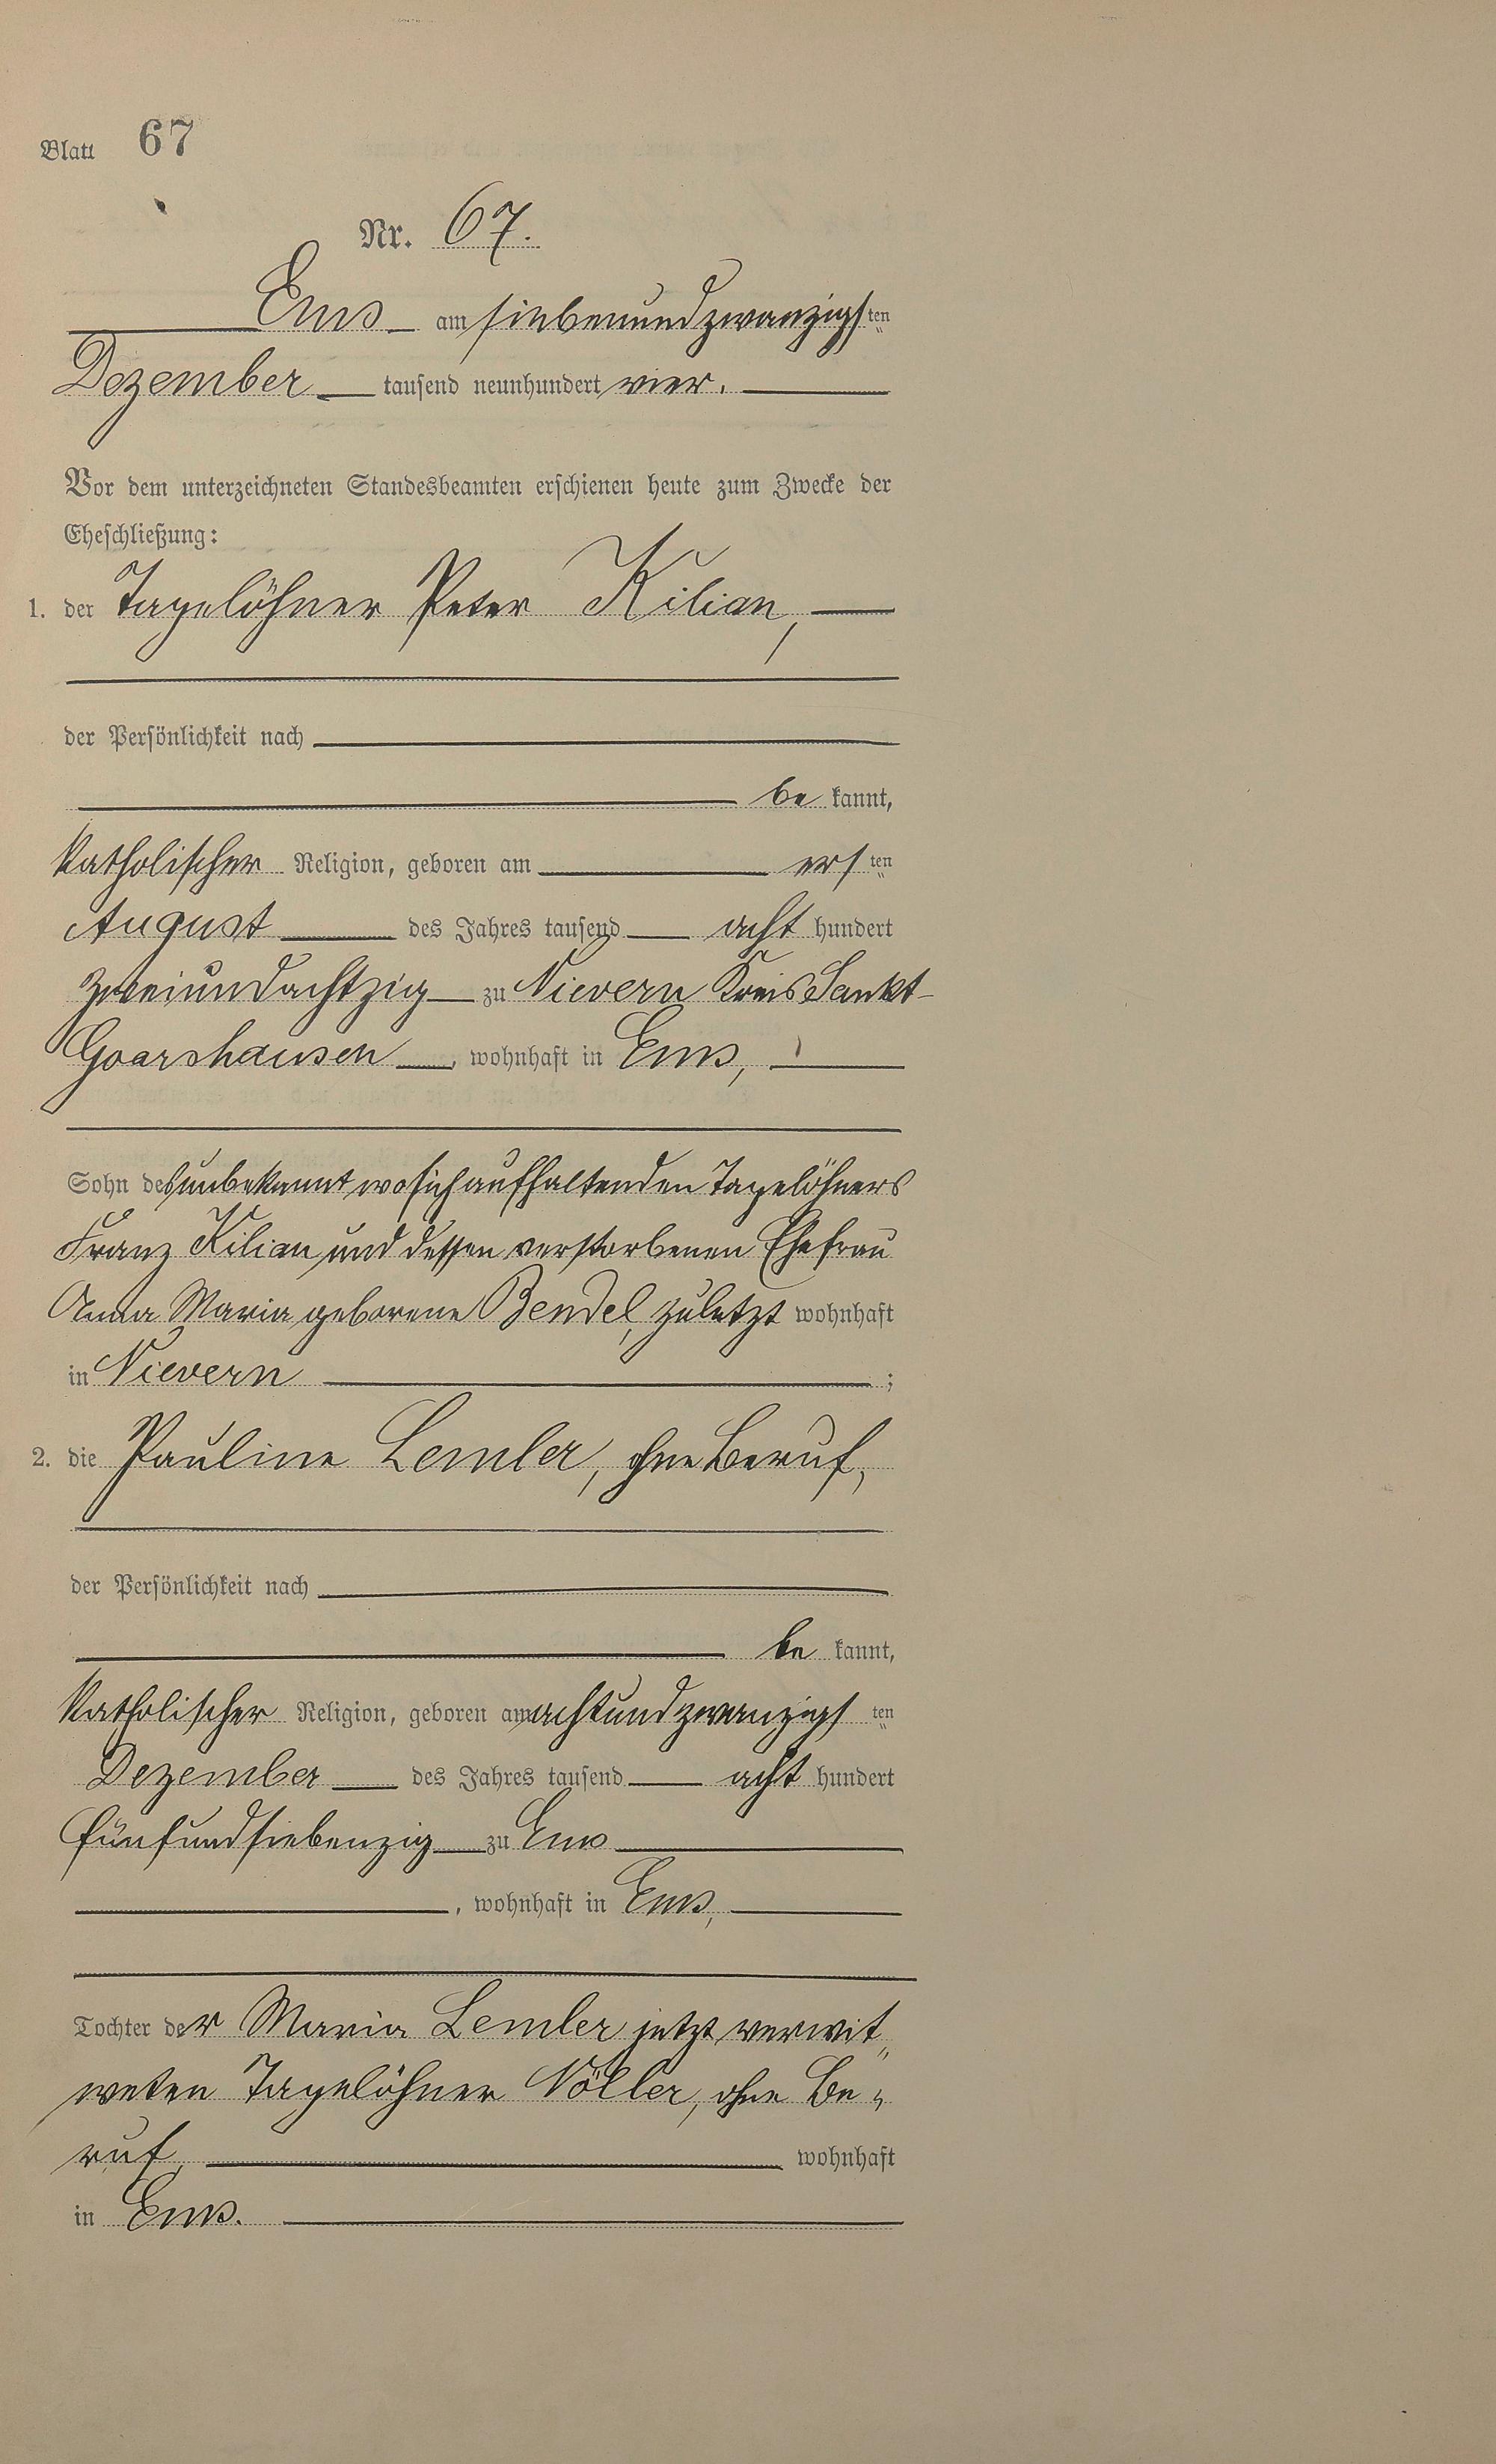 Blatt 67
Nr. 67.
Ems am siebenundzwanzigsten
Dezember tausend neunhundert vier.
Vor dem unterzeichneten Standesbeamten erschienen heute zum Zwecke der
Eheschließung:
1. der Tagelöhner Peter Kilian,
der Persönlichkeit nach
be kannt,
katholischer Religion, geboren am ersten
August des Jahres tausend acht hundert
zweiundachtzig zu Nievern Kreis Sankt-
Goarshausen, wohnhaft in Ems,
Sohn des unbekannt wo sich aufhaltenden Tagelöhners
Franz Kilian und dessen verstorbenen Ehefrau
Anna Maria geborene Bendel, zuletzt wohnhaft
in Nievern ;
2. die Pauline Lemler, ohne Beruf,
der Persönlichkeit nach
be kannt,
katholischer Religion, geboren am achtundzwanzigsten
Dezember des Jahres tausend acht hundert
fünfundsiebenzig zu Ems
, wohnhaft in Ems,
Tochter der Maria Lemler jetzt verwit„
weten Tagelöhner Nöller, ohne Be„
ruf, wohnhaft
in Ems.